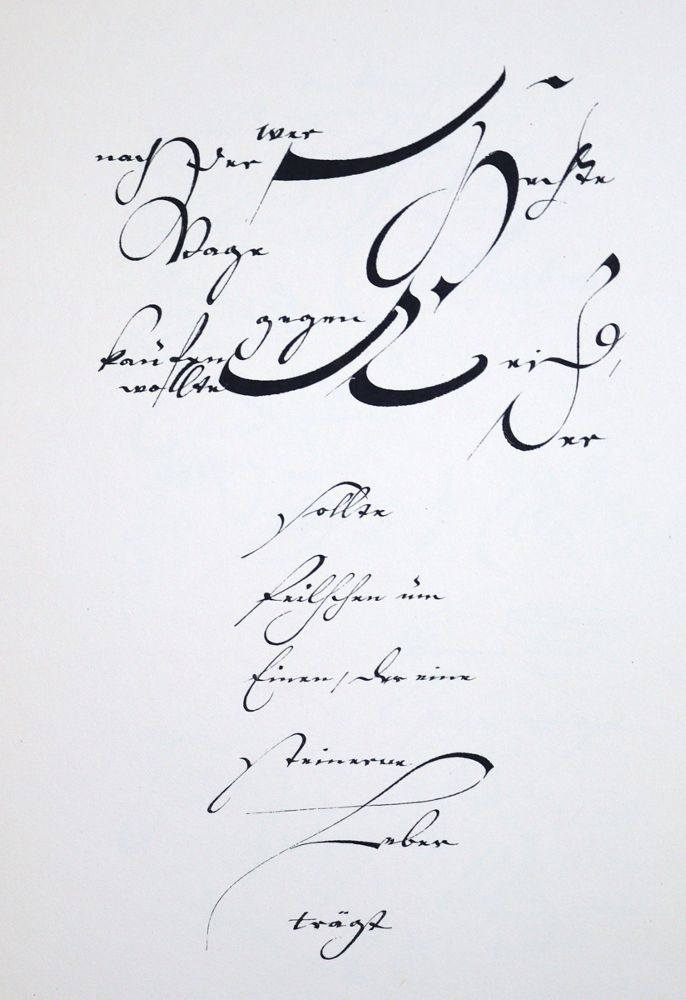 wer
nach der Hechte
Wage
gegen
kaufen
wollte
der
sollte
feilschen um
Einen / der eine
steinerne
Leber
trägt